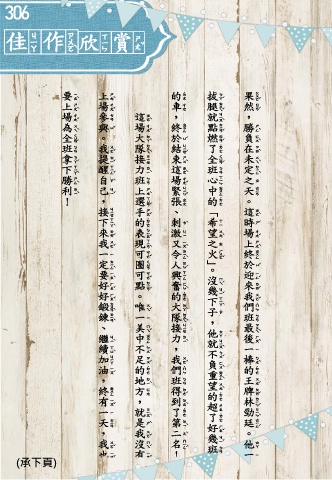 306
佳作欣賞
果然，勝負在未定之天。這時場上終於迎來我們班最後一棒的王牌林勁廷。他一
拔腿就點燃了全班心中的「希望之火」。沒幾下子，他就不負重望的超了好幾班
的車，終於結束這場緊張、刺激又令人興奮的大隊接力，我們班得到了第二名！
這場大隊接力班上選手的表現可圈可點。唯一美中不足的地方，就是我沒有
上場參與。我提醒自己，接下來我一定要好好鍛鍊、繼續加油，終有一天，我也
要上場為全班拿下勝利！
(承下頁)